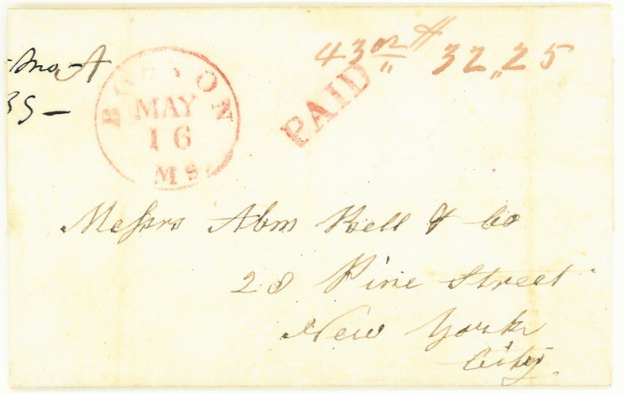 43 oz 32,,25
mo A
35 —
BOSTON
MAY
16
Ms
PAID
Messrs Abm Bell & Co
28 Pine Street
New York
City.